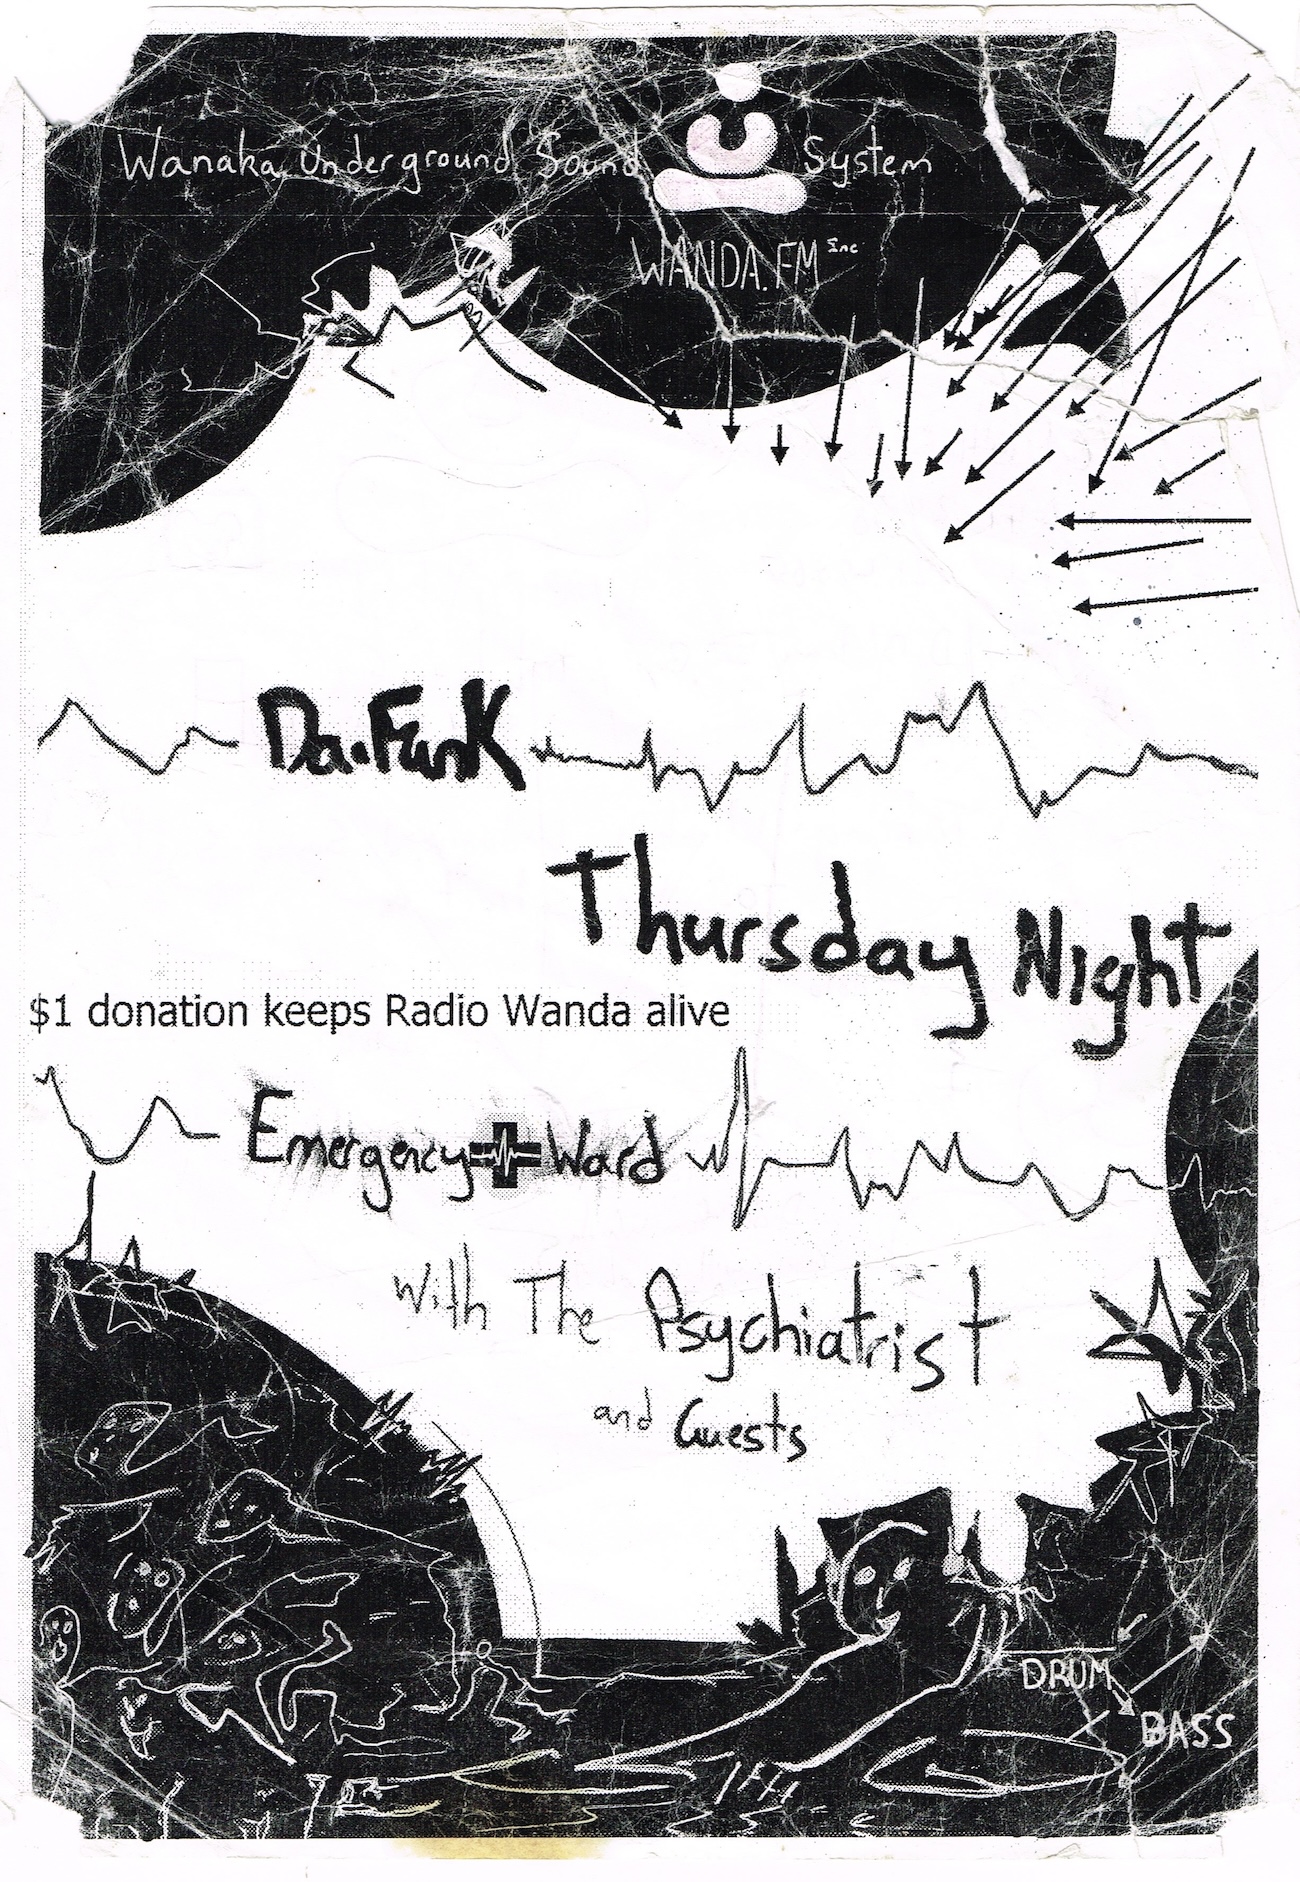 Wanaka Underground Sound System
WANDA.FM Inc
Da.Funk
Thursday Night
$1 donation keeps Radio Wanda alive
Emergency Ward
With The Psychiatrist
and Guests
DRUM
BASS